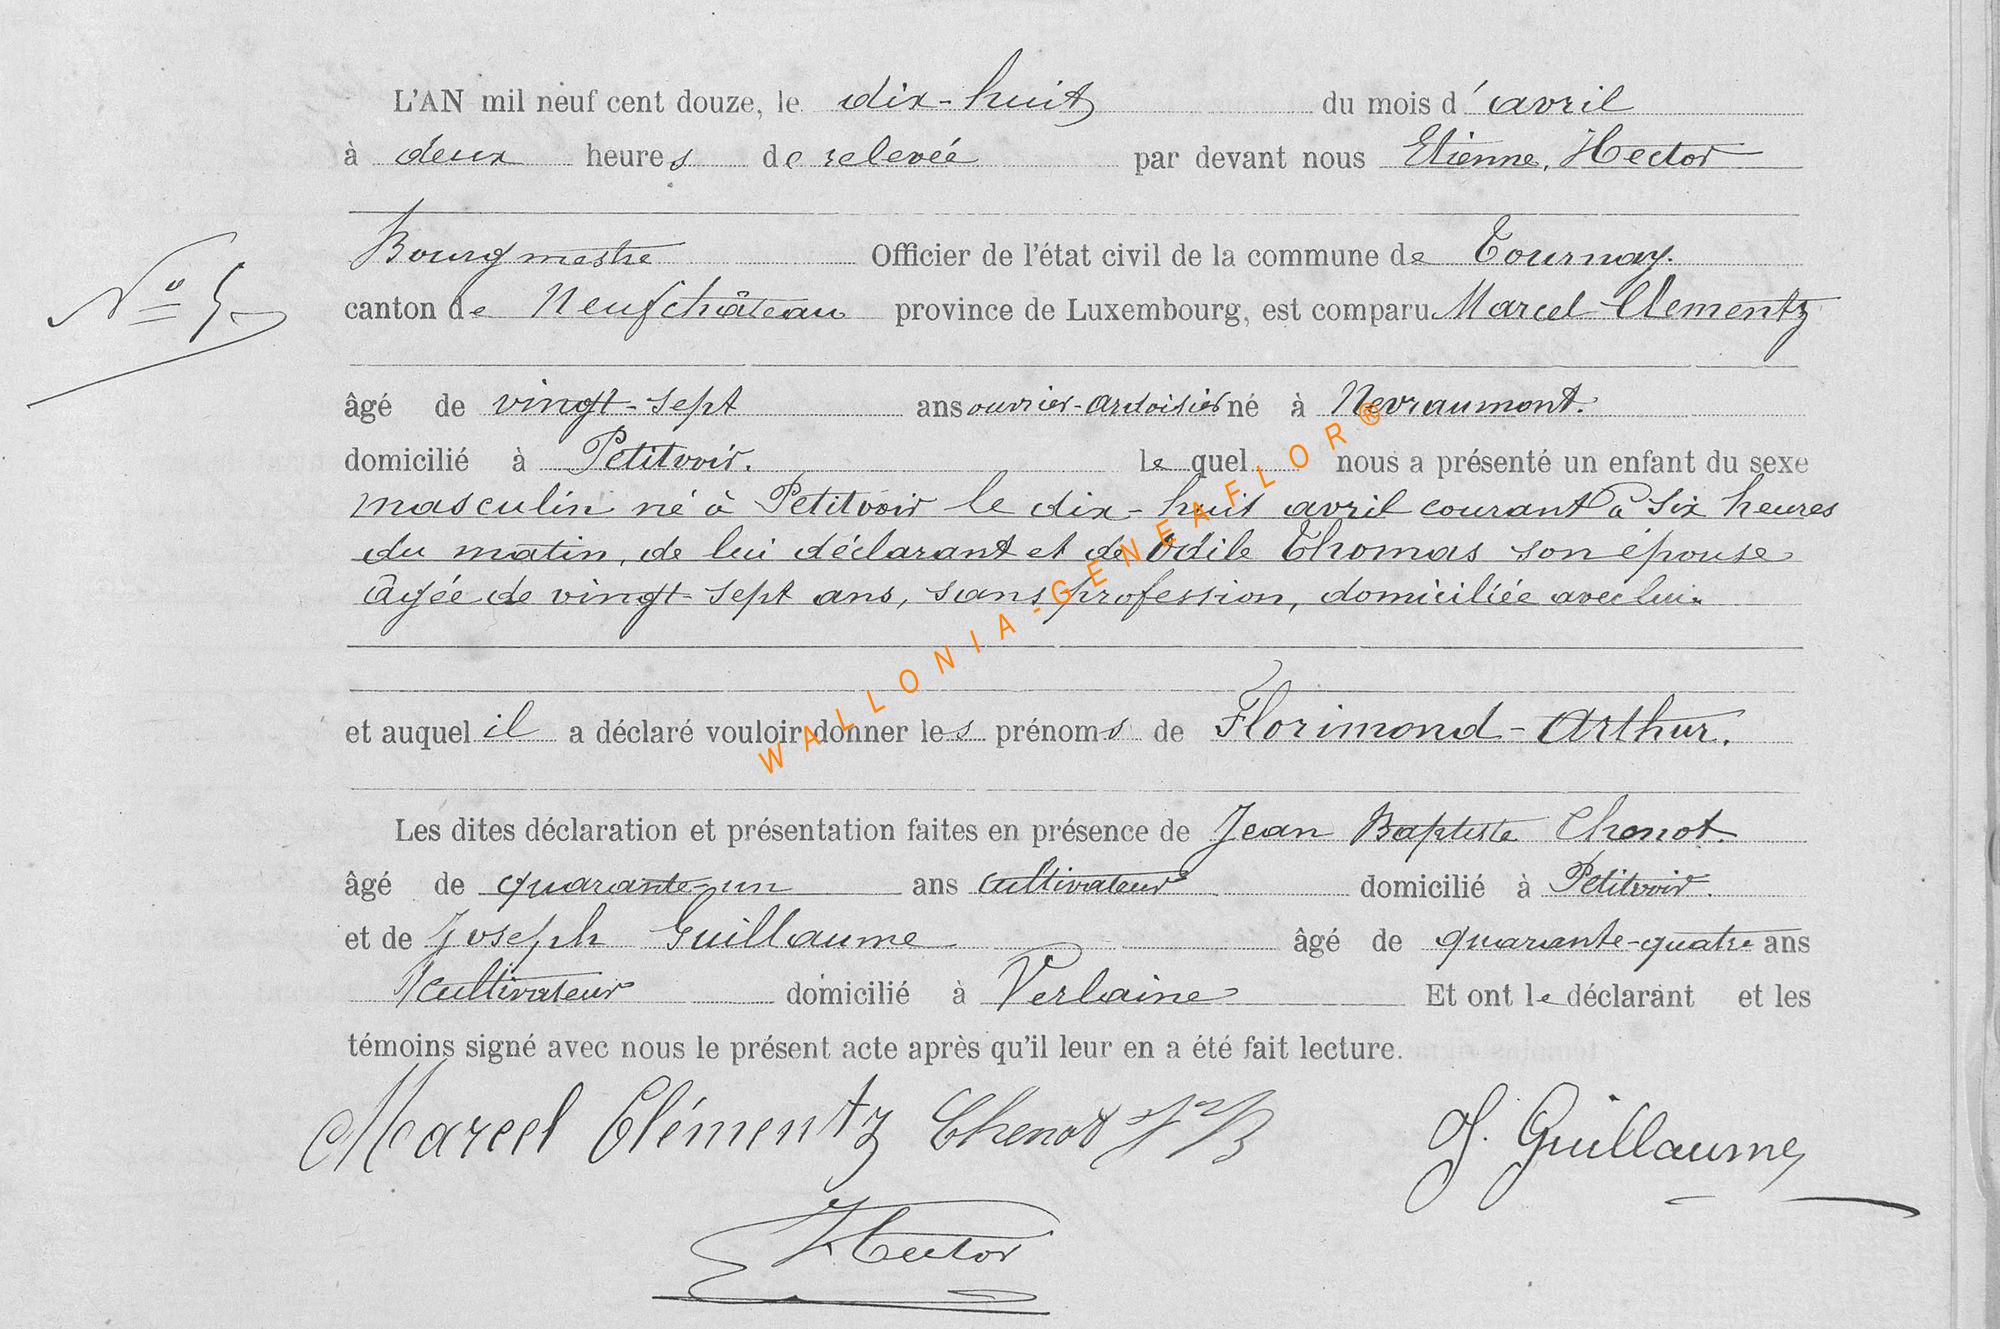 L'AN mil neuf cent douze, le dix-huit du mois d'avril
à deux heures de relevée par devant nous Etienne, Hector
Bourgmestre Officier de l'état civil de la commune de Tournay.
N° 5
canton de Neufchâteau province de Luxembourg, est comparu Marcel Clementz
âgé de vingt-sept ans ouvrier-ardoisier né à Nevraumont.
domicilié à Petitvoir. le quel nous a présenté un enfant du sexe
masculin né à Petitvoir le dix-huit avril courant à six heures
du matin, de lui déclarant et de Odile Thomas son épouse
âgée de vingt-sept ans, sans profession, domiciliée avec lui.
et auquel il a déclaré vouloir donner les prénoms de Florimond-Arthur.
Les dites déclaration et présentation faites en présence de Jean Baptiste Chenot.
âgé de quarante-un ans cultivateur domicilié à Petitvoir.
et de Joseph Guillaume âgé de quarante-quatre ans
cultivateur domicilié à Verlaine Et ont le déclarant et les
témoins signé avec nous le présent acte après qu'il leur en a été fait lecture.
Marcel Clémentz Chenot J B J. Guillaume
Hector
WALLONIA-GENEAFLOR®